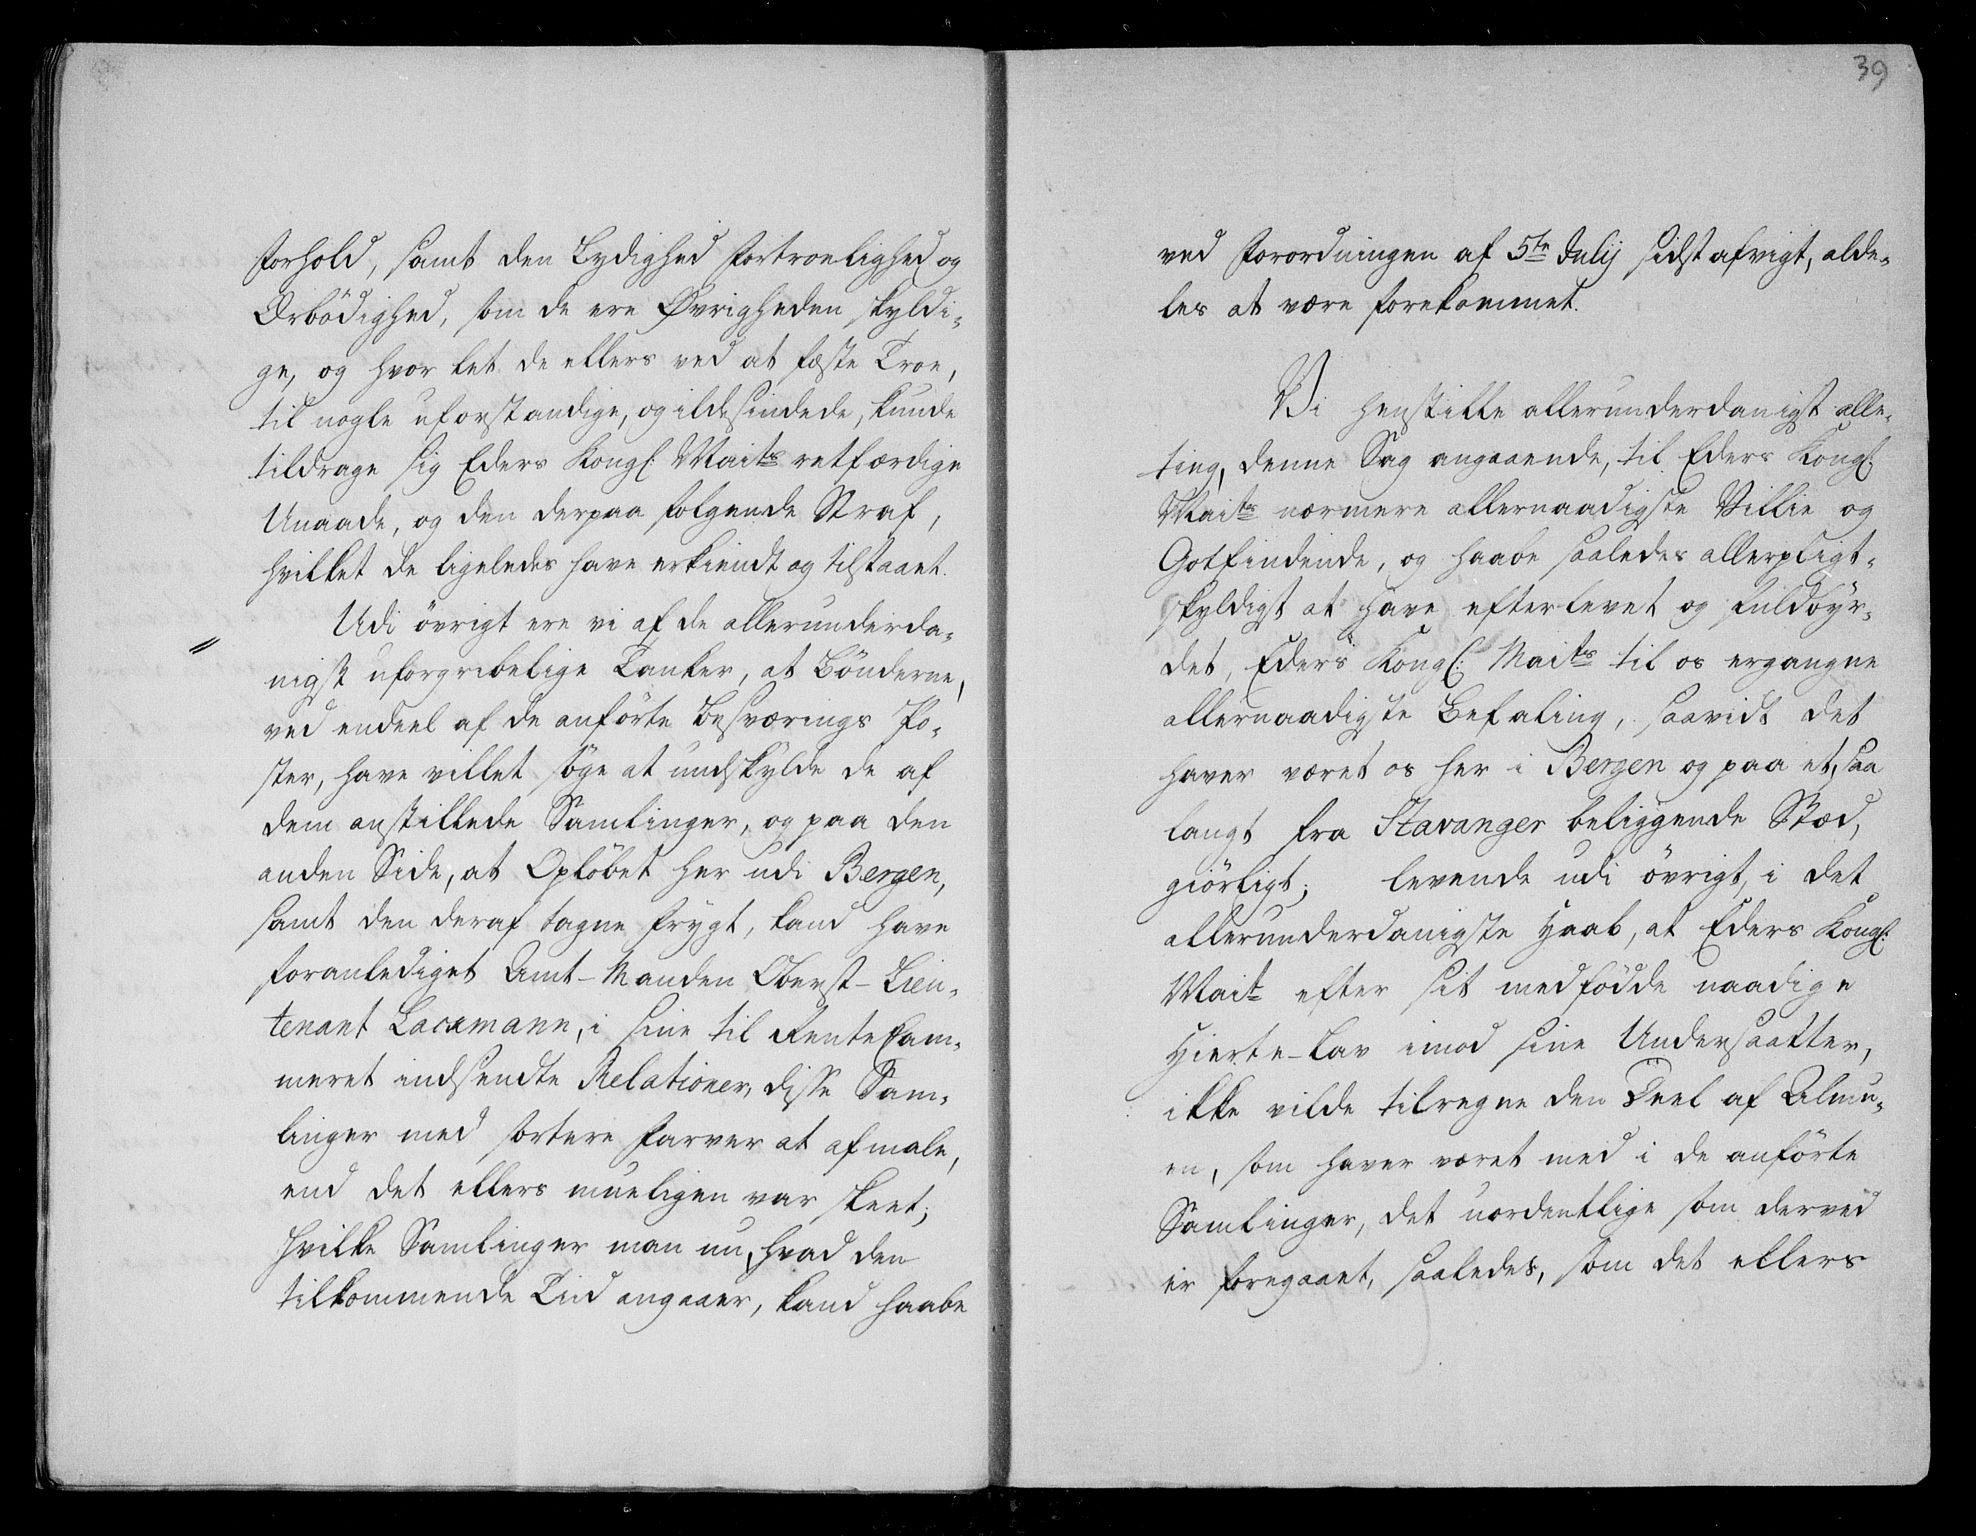 Forhold, samt den Lydighed Fortroelighed og
Ærbödighed, som de ere Øvrigheden skyldi-
ge, og hvor let de ellers ved at fæste Troe,
til nogle uforstandige, og ildesindede, kunde
tildrage sig Eders Kongl: Maits retfærdige
Unaade, og den derpaa folgende Straf,
hvilket de ligeledes have erkiendt og tilstaaet.
Udi övrigt ere vi af de allerunderda-
nigst uforgribelige Tanker, at Bönderne,
ved endeel af de anförte Besværings Po-
ster, have villet söge at undskylde de af
dem anstillede Samlinger, og paa den
anden Side, at Oplöbet her udi Bergen,
samt den deraf tagne Frygt, kand have
foranlediget Amt-Manden Oberst-Lieu-
tenant Lacxmann, i sine til RenteCam-
meret indsendte Relationer, disse Sam-
linger med sortere Farver at afmale,
end det ellers mueligen var skeet;
Hvilke Samlinger man nu, hvad den
tilkommende Tiid angaaer, kand haabe
39
ved Forordningen af 5te Julij sidst afvigt, alde-
les at være forekommet.
Vi henstille allerunderdanigst alle-
ting, denne Sag angaaende, til Eders Kongl:
Maits nærmere allernaadigste Villie og
Gotfindende, og haabe saaledes allerpligt-
skyldigst at have efterlevet og fuldbyr-
det, Eders Kongl: Maits til os ergangne
allernaadigste Befaling, saavidt det
haver været os her i Bergen og paa et, saa
langt fra Stavanger beliggende Stæd,
giörligt; levende udi övrigt, i det
allerunderdanigste Haab, at Eders Kongl:
Mait efter sit medfödde naadige
Hierte-Lav imod sine Undersaatter,
ikke vilde tilregne den Deel af Almu-
en, som haver været med i de anförte
Samlinger, det uordentlige som derved
er foregaaet, saaledes, som det ellers